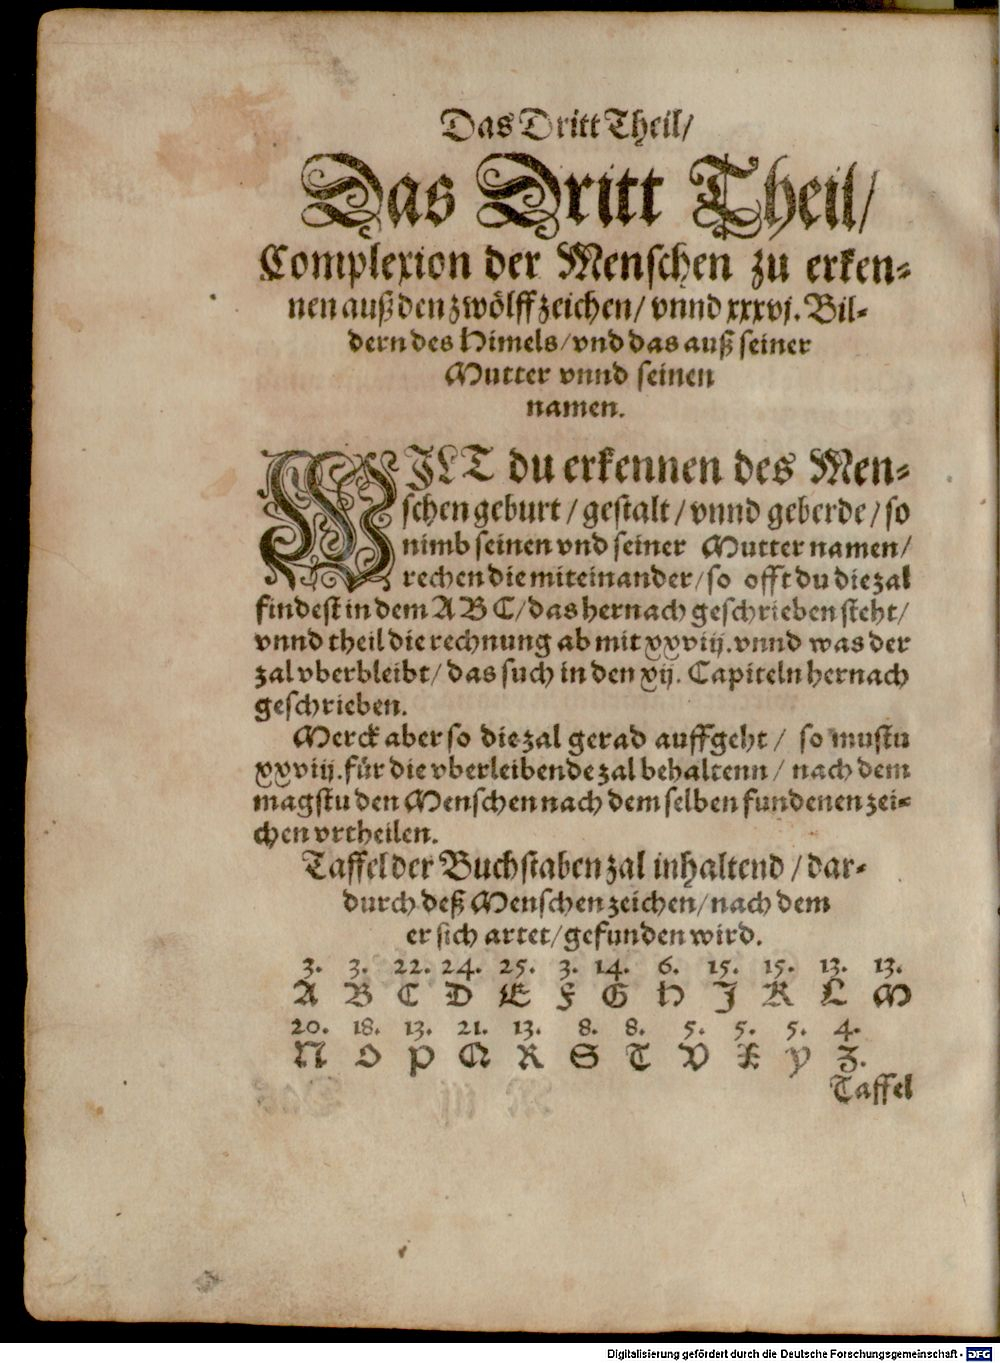 Das Dritt Theil/
Das Dritt Theil/
Complexion der Menschen zu erken-
nen auß den zwölff zeichen/ vnnd xxxvj. Bil-
dern des Himels/ vnd das auß seiner
Mutter vnnd seinen
namen.
WILT du erkennen des Men-
schen geburt / gestalt / vnnd geberde / so
nimb seinen vnd seiner Mutter namen/
rechen die miteinander/ so offt du die zal
findest in dem A B C/ das hernach geschrieben steht/
vnnd theil die rechnung ab mit xxviij. vnnd was der
zal vberbleibt/ das such in den xij. Capiteln hernach
geschrieben.
Merck aber so die zal gerad auffgeht / so mustu
xxviij. für die vberleibende zal behaltenn / nach dem
magstu den Menschen nach dem selben fundenen zei-
chen vrtheilen.
Taffel der Buchstaben zal inhaltend / dar-
durch deß Menschen zeichen/ nach dem
er sich artet/ gefunden wird.
3. 3. 22. 24. 25. 3. 14. 6. 15. 15. 13. 13.
A B C D E F G H J K L M
20. 18. 13. 21. 13. 8. 8. 5. 5. 5. 4.
N O P Q R S T V X Y Z.
Taffel
Digitalisierung gefördert durch die Deutsche Forschungsgemeinschaft - DFG